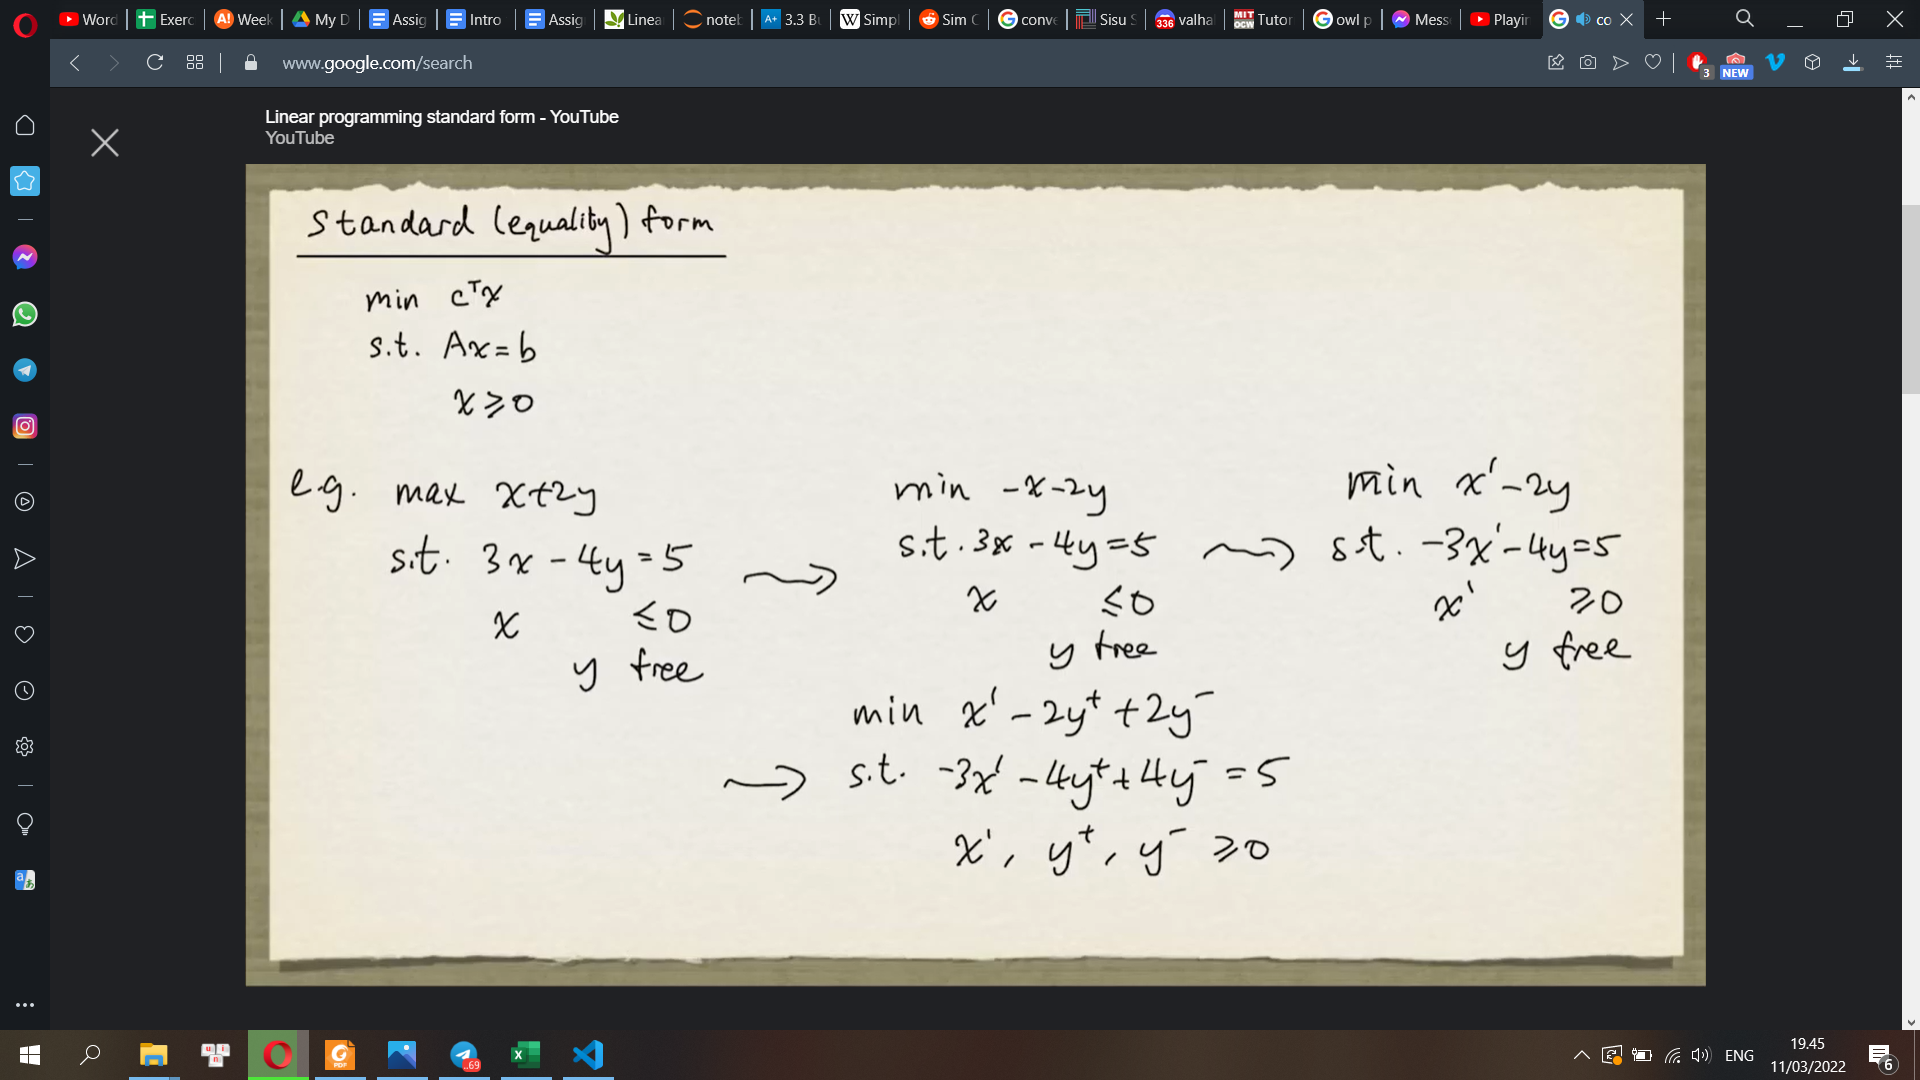 Word
Exerc
Week
My D
Assig
Intro
Assig
Linea
noteb
3.3 Bu
Simpl
Sim C
conve
Sisu S
valhal
Tutor
owl p
Mess
Playin
co
www.google.com/search
3
NEW
Linear programming standard form - YouTube
YouTube
Standard (equality) form
min cᵀx
s.t. Ax=b
x ⩾ 0
e.g. max x+2y
s.t. 3x - 4y = 5
x ≤ 0
y free
min -x-2y
s.t. 3x - 4y = 5
x ≤ 0
y free
min x' - 2y
s.t. -3x' - 4y = 5
x' ⩾ 0
y free
min x' - 2y⁺ + 2y⁻
s.t. -3x' - 4y⁺ + 4y⁻ = 5
x', y⁺, y⁻ ⩾ 0
ENG
19.45
11/03/2022
6